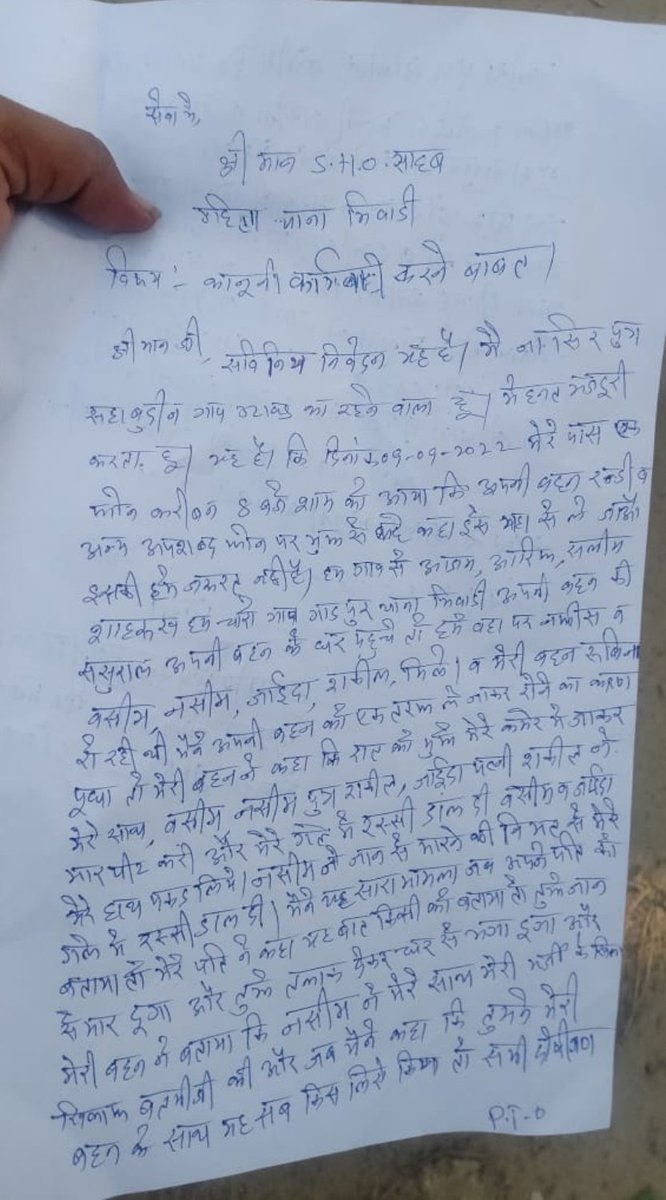 सेवा में,
श्री मान S.H.O. साहब
महिला थाना भिवाडी
विषय :- कानूनी कार्यवाही करने बाबत।
श्री मान जी, सविनिय निवेदन यह है। मै नासिर पुत्र
सहाबुदीन गाव का रहने वाला हूँ। मेहनत मजदूरी
करता हू। यह है। कि दिनांक 09-09-2022 मेरे पास एक
फोन करीबन 8 बजे शाम को आया कि अपनी बहन रन्डी व
अन्य अपशब्द फोन पर मुझ से कहे कहा इसे यहा से ले जाओ
इसकी हमे जरूरत नही है। हम गाव से आजम, आरिफ, सलीम
हम चारो गाव गाडपुर थाना भिवाडी अपनी बहन की
ससुराल अपनी बहन के घर पहुचे तो हमे वहा पर नफीस व
वसीम, नसीम, जाईदा, शकील, मिले। व मेरी बहन रूकिना
रो रही थी मैने अपनी बहन को एक तरफ ले जाकर रोने का कारण
पूछा तो मेरी बहन ने कहा कि रात को मुझे मेरे कमरे मे जाकर
मेरे साथ, वसीम नसीम पुत्र शकील, जाईदा पत्नी शकील ने
मार पीट करी और मेरे गले मे रस्सी डाल दी वसीम व जाईदा
मेरे हाथ पकड लिये। नसीम ने जान से मारने की नियत से मेरे
गले मे रस्सी डाल दी। मैने यह सारा मामला जब अपने पति को
बताया तो मेरे पति ने कहा यह बात किसी को बताया तो तुझे जान
से मार दूगा और तुझे तलाक देकर घर से भगा दूगा और
मेरी बहन ने बताया कि नसीम ने मेरे साथ मेरी मर्जी के
खिलाफ बतमीजी की और जब मैने कहा कि तुमने मेरी
बहन के साथ यह सब किस लिये किया तो सभी
P.T.O